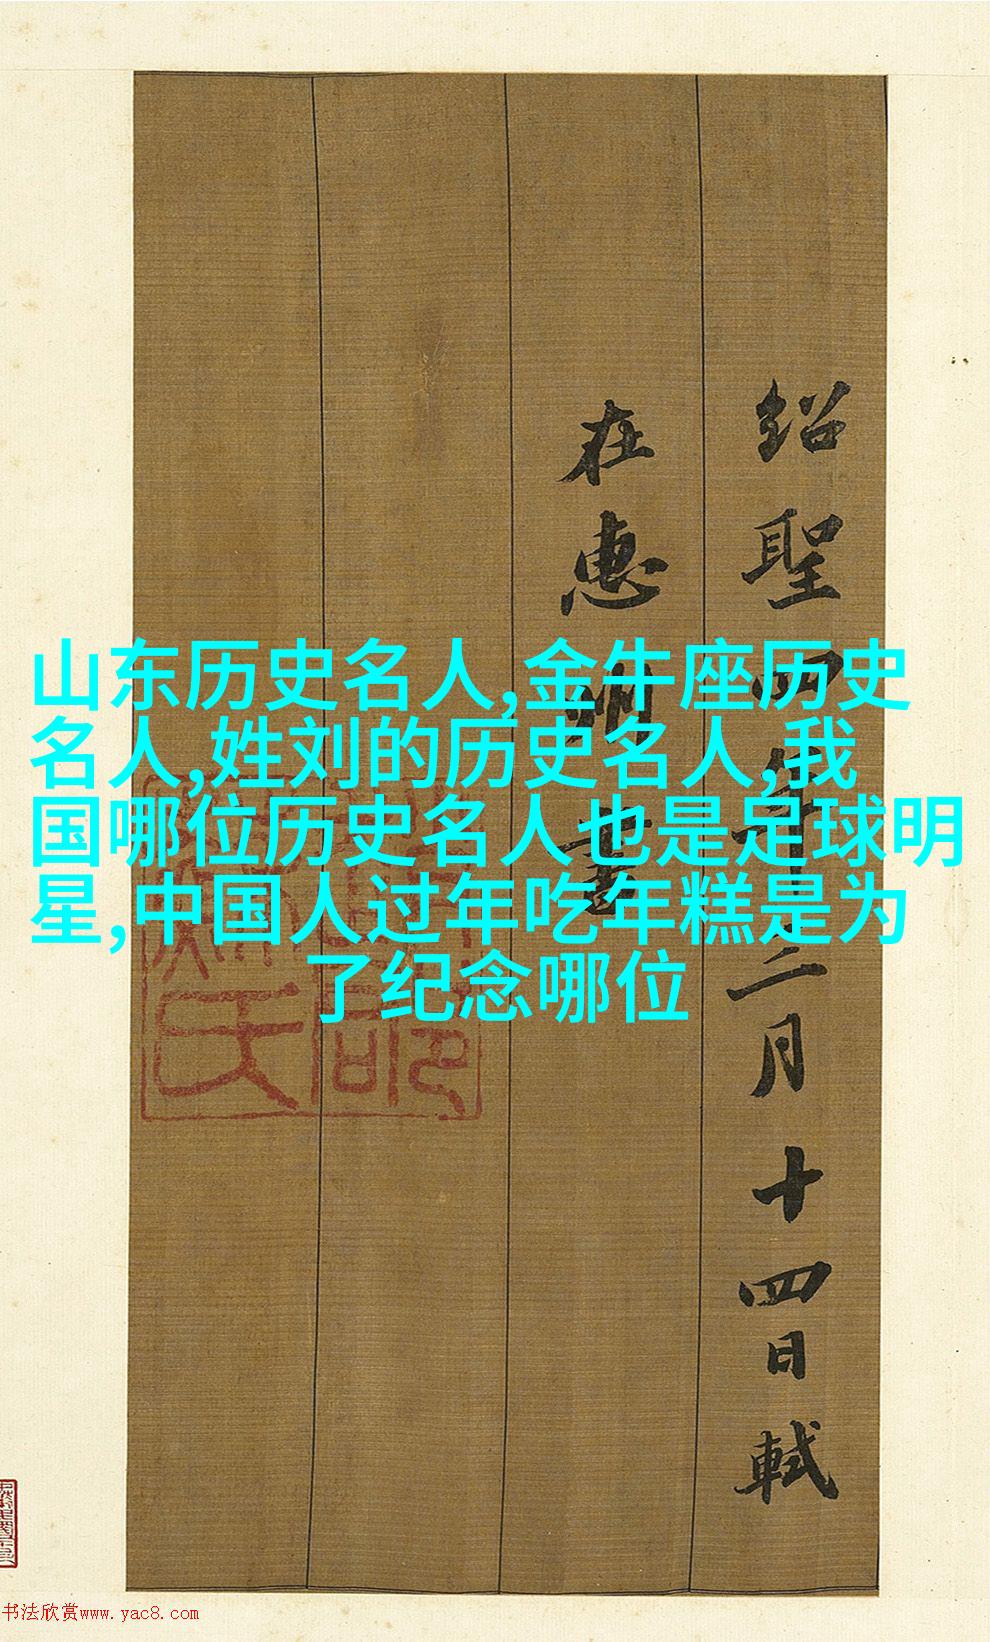 紹聖四年二月十四日軾
在惠州書
山东历史名人,金牛座历史
名人,姓刘的历史名人,我
国哪位历史名人也是足球明
星,中国人过年吃年糕是为
了纪念哪位
书法欣赏www.yac8.com